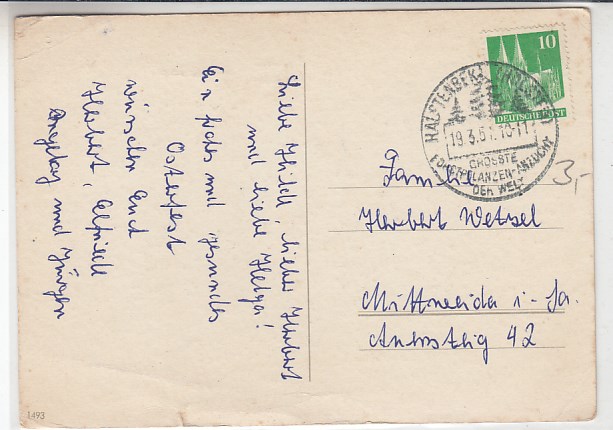 Liebe Thilde, lieber Herbert
und liebe Helga!
Ein frohes und gesundes
Osterfest
wünschen Euch
Herbert, Elfriede
und Jürgen
10
DEUTSCHE POST
HALSTENBEK
19.3.51.10-11
GRÖSSTE
FORSTPFLANZEN-ANZUCHT
DER WELT
3,-
Familie
Herbert Wetzel
Mittweida i. Sa.
42
1493